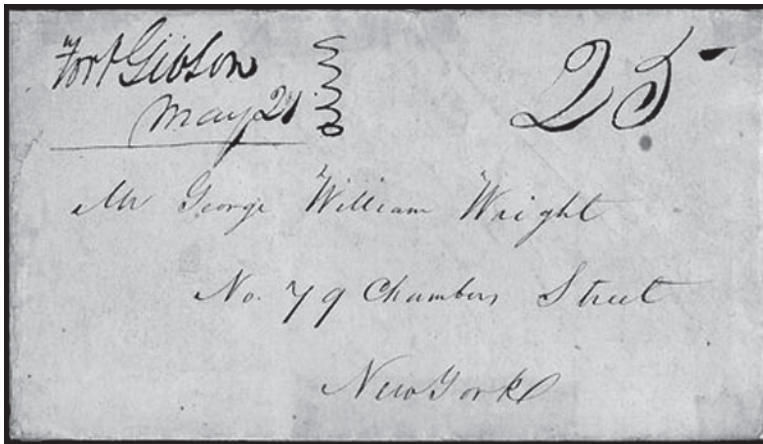 Fort Gibson
May 21
25
Mr George William Wright
No. 79 Chambers Street
New York